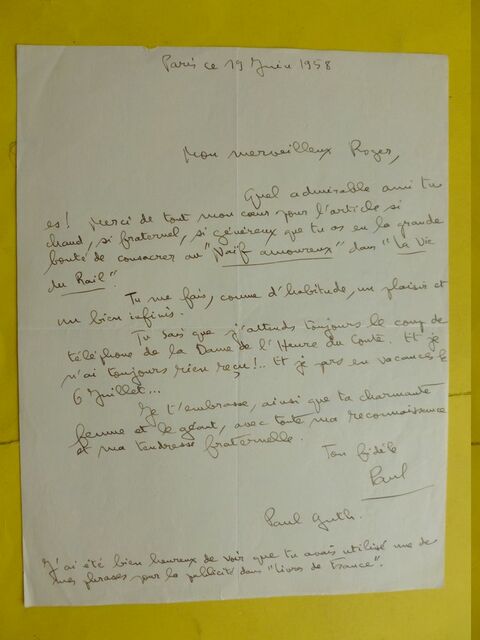 Paris ce 19 Juin 1958
Mon merveilleux Roger,
Quel admirable ami tu
es ! Merci de tout mon cœur pour l'article si
chaud, si fraternel, si généreux que tu as eu la grande
bonté de consacrer au "Naïf amoureux" dans "La Vie
du Rail".
Tu me fais, comme d'habitude, un plaisir et
un bien infinis.
Tu sais que j'attends toujours le coup de
téléphone de la Dame de l'Heure du Conte. Et je
n'ai toujours rien reçu !.. Et je pars en vacances le
6 Juillet...
Je t'embrasse, ainsi que ta charmante
femme et le géant, avec toute ma reconnaissance
et ma tendresse fraternelle.
Ton fidèle
Paul
Paul Guth.
J'ai été bien heureux de voir que tu avais utilisé une de
mes phrases pour la publicité dans "Livres de France".